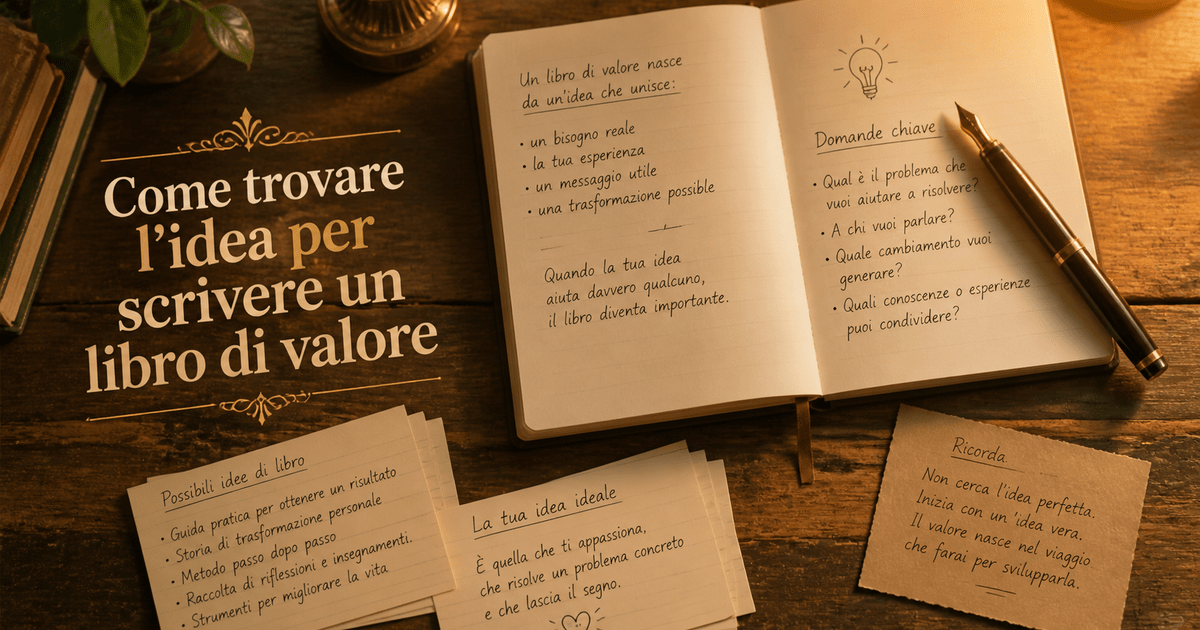 Come trovare
l'idea per
scrivere un
libro di valore
Un libro di valore nasce
da un'idea che unisce:
• un bisogno reale
• la tua esperienza
• un messaggio utile
• una trasformazione possibile
Quando la tua idea
aiuta davvero qualcuno,
il libro diventa importante.
Domande chiave
• Qual è il problema che
vuoi aiutare a risolvere?
• A chi vuoi parlare?
• Quale cambiamento vuoi
generare?
• Quali conoscenze o esperienze
puoi condividere?
Possibili idee di libro
• Guida pratica per ottenere un risultato
• Storia di trasformazione personale
• Metodo passo dopo passo
• Raccolta di riflessioni e insegnamenti.
• Strumenti per migliorare la vita
La tua idea ideale
È quella che ti appassiona,
che risolve un problema concreto
e che lascia il segno.
Ricorda
Non cerca l'idea perfetta.
Inizia con un'idea vera.
Il valore nasce nel viaggio
che farai per svilupparla.